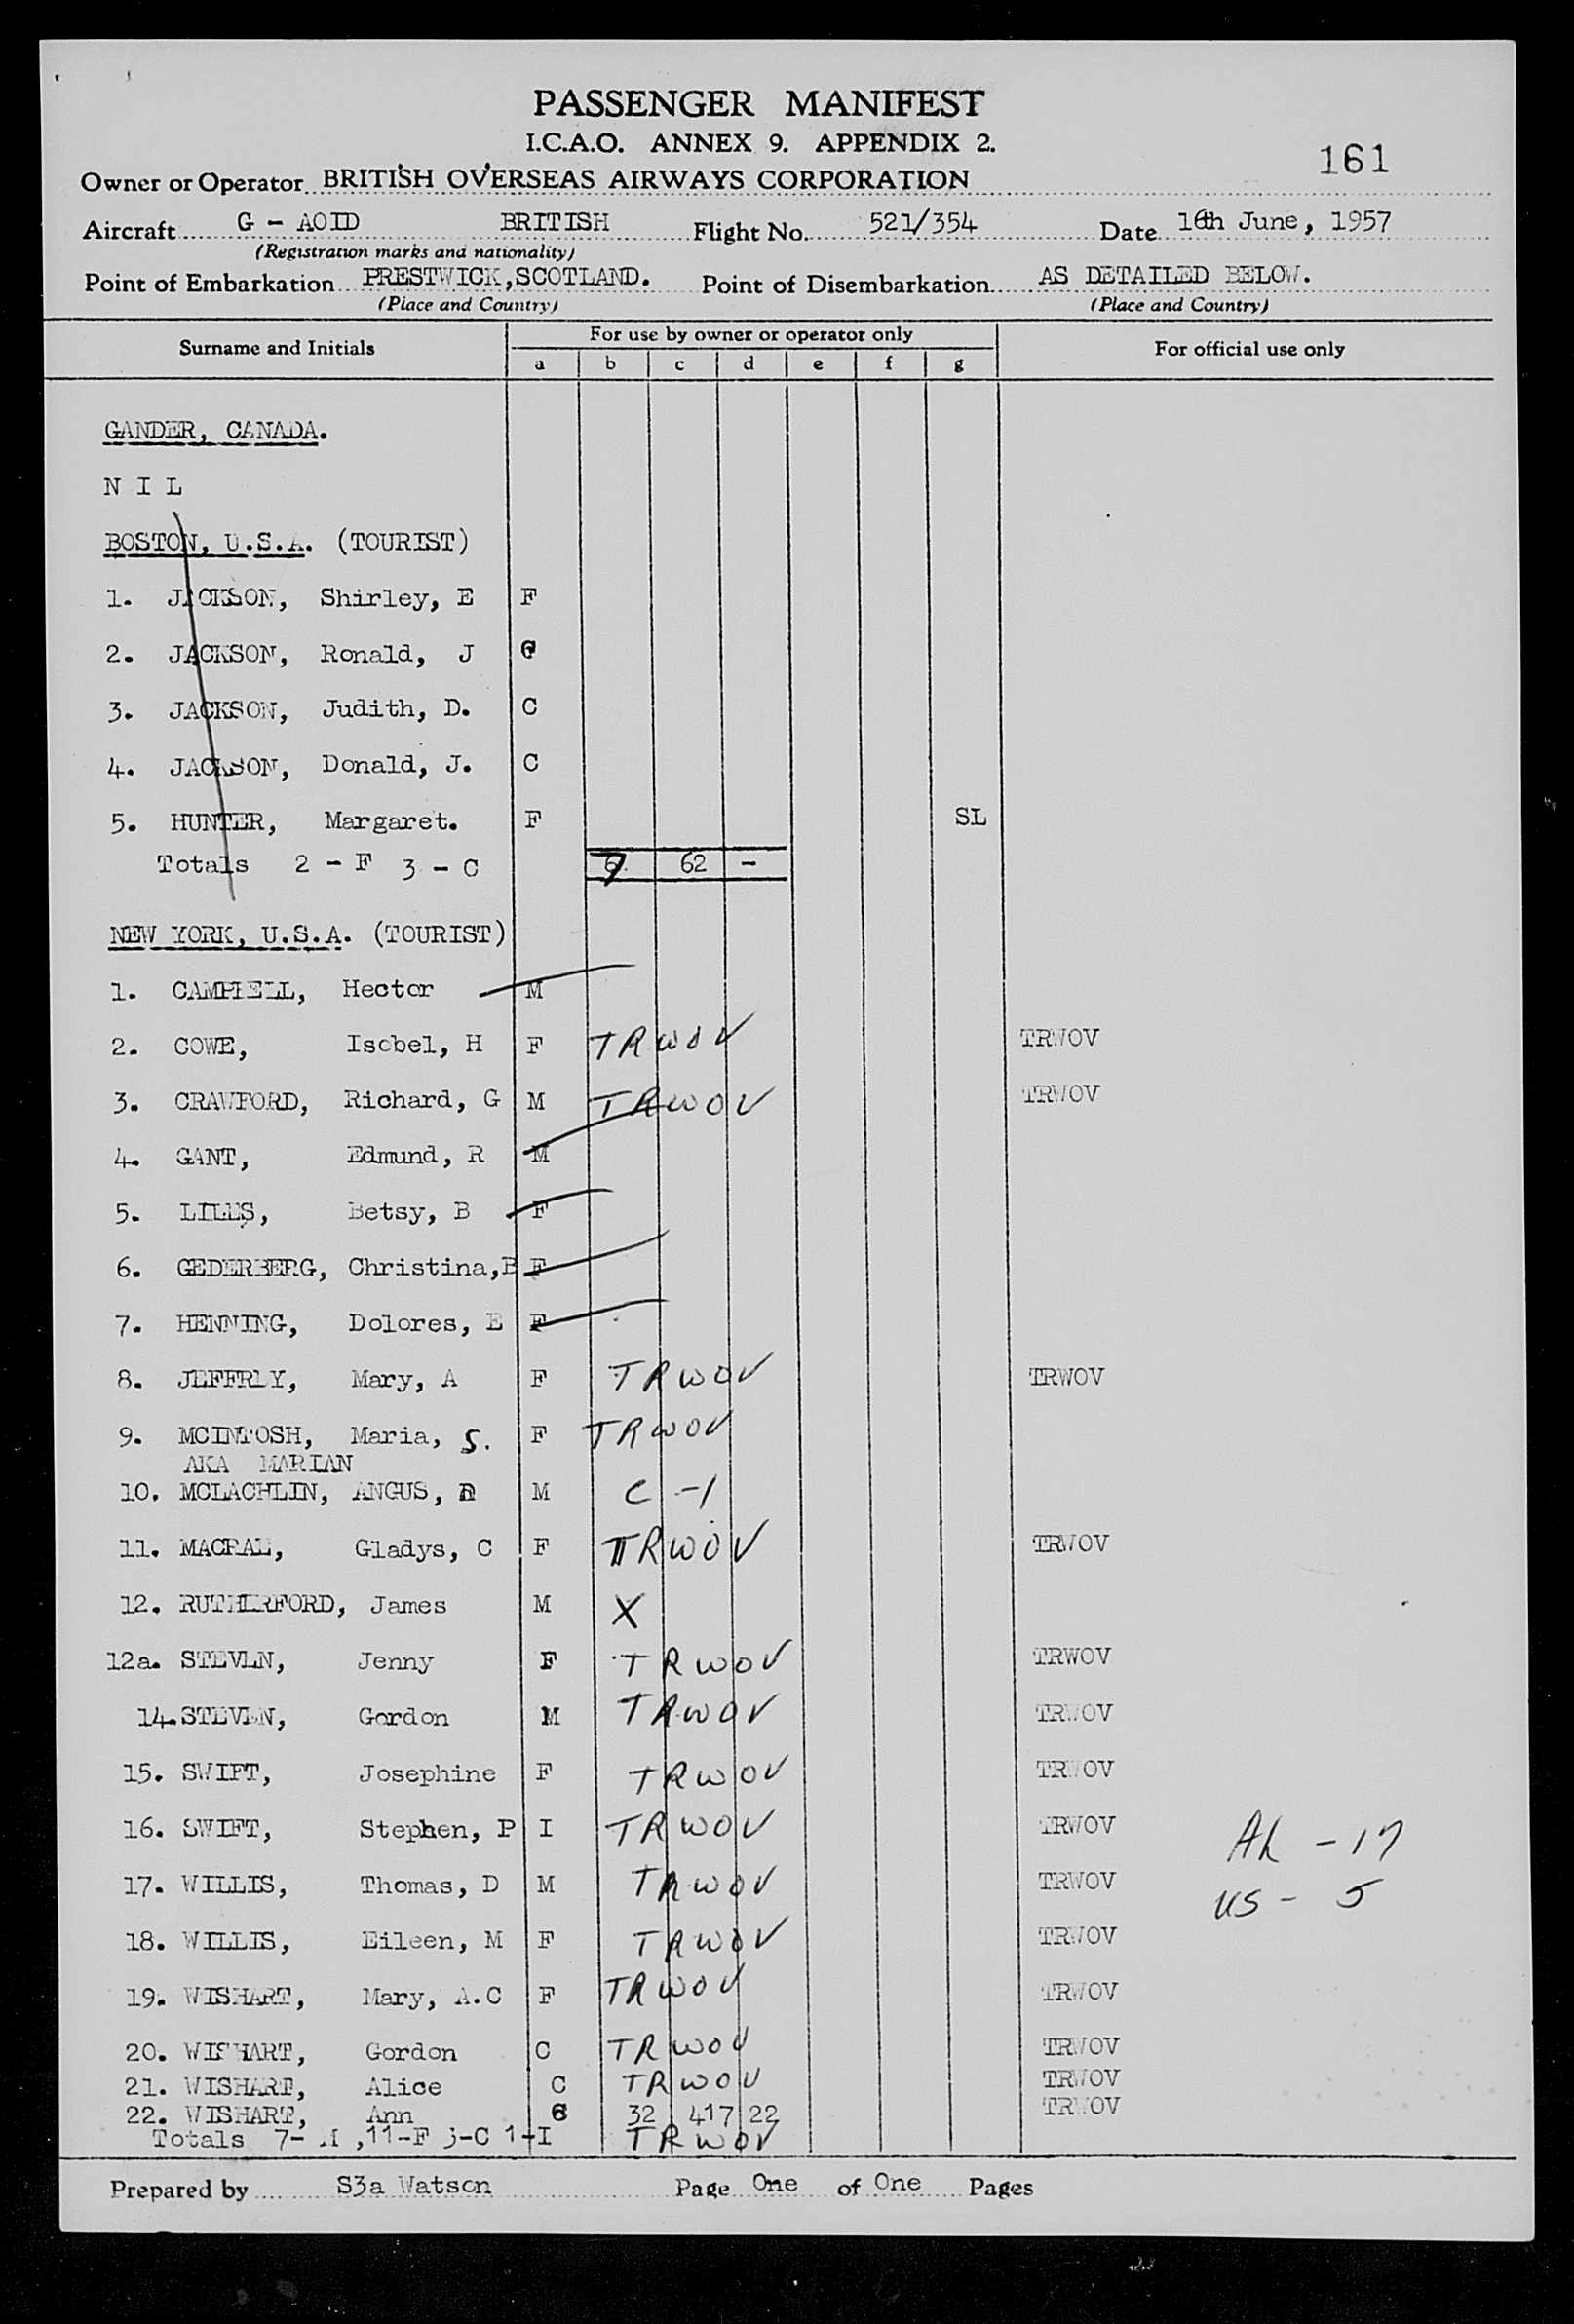 PASSENGER MANIFEST
I.C.A.O. ANNEX 9. APPENDIX 2.
161
Owner or Operator BRITISH OVERSEAS AIRWAYS CORPORATION
Aircraft G - AOID BRITISH Flight No. 521/354 Date 16th June, 1957
(Registration marks and nationality)
Point of Embarkation PRESTWICK,SCOTLAND. Point of Disembarkation AS DETAILED BELOW.
(Place and Country) (Place and Country)
Surname and Initials For use by owner or operator only For official use only
a b c d e f g
GANDER, CANADA.
N I L
BOSTON, U.S.A. (TOURIST)
1. JACKSON, Shirley, E F
2. JACKSON, Ronald, J C
3. JACKSON, Judith, D. C
4. JACKSON, Donald, J. C
5. HUNTER, Margaret. F SL
Totals 2 - F 3 - C 7 62 -
NEW YORK, U.S.A. (TOURIST)
1. CAMPBELL, Hector M
2. COWE, Isobel, H F TRWOV TRWOV
3. CRAWFORD, Richard, G M TRWOV TRWOV
4. GANT, Edmund, R M
5. LILES, Betsy, B F
6. GEDERBERG, Christina,B F
7. HENNING, Dolores, E F
8. JEFFREY, Mary, A F TRWOV TRWOV
9. MCINTOSH, Maria, S. F TRWOV
AKA MARIAN
10. MCLACHLIN, ANGUS, D M C -1
11. MACRAE, Gladys, C F TRWOV TRWOV
12. RUTHERFORD, James M X
12a. STEVEN, Jenny F TRWOV TRWOV
14. STEVEN, Gordon M TRWOV TRWOV
15. SWIFT, Josephine F TRWOV TRWOV
16. SWIFT, Stephen, P I TRWOV TRWOV
AL - 17
17. WILLIS, Thomas, D M TRWOV TRWOV
US - 5
18. WILLIS, Eileen, M F TRWOV TRWOV
19. WISHART, Mary, A.C F TRWOV TRWOV
20. WISHART, Gordon C TRWOV TRWOV
21. WISHART, Alice C TRWOV TRWOV
22. WISHART, Ann C 32 417 22 TRWOV
Totals 7- M ,11-F 3-C 1-I TRWOV
Prepared by S3a Watson Page One of One Pages